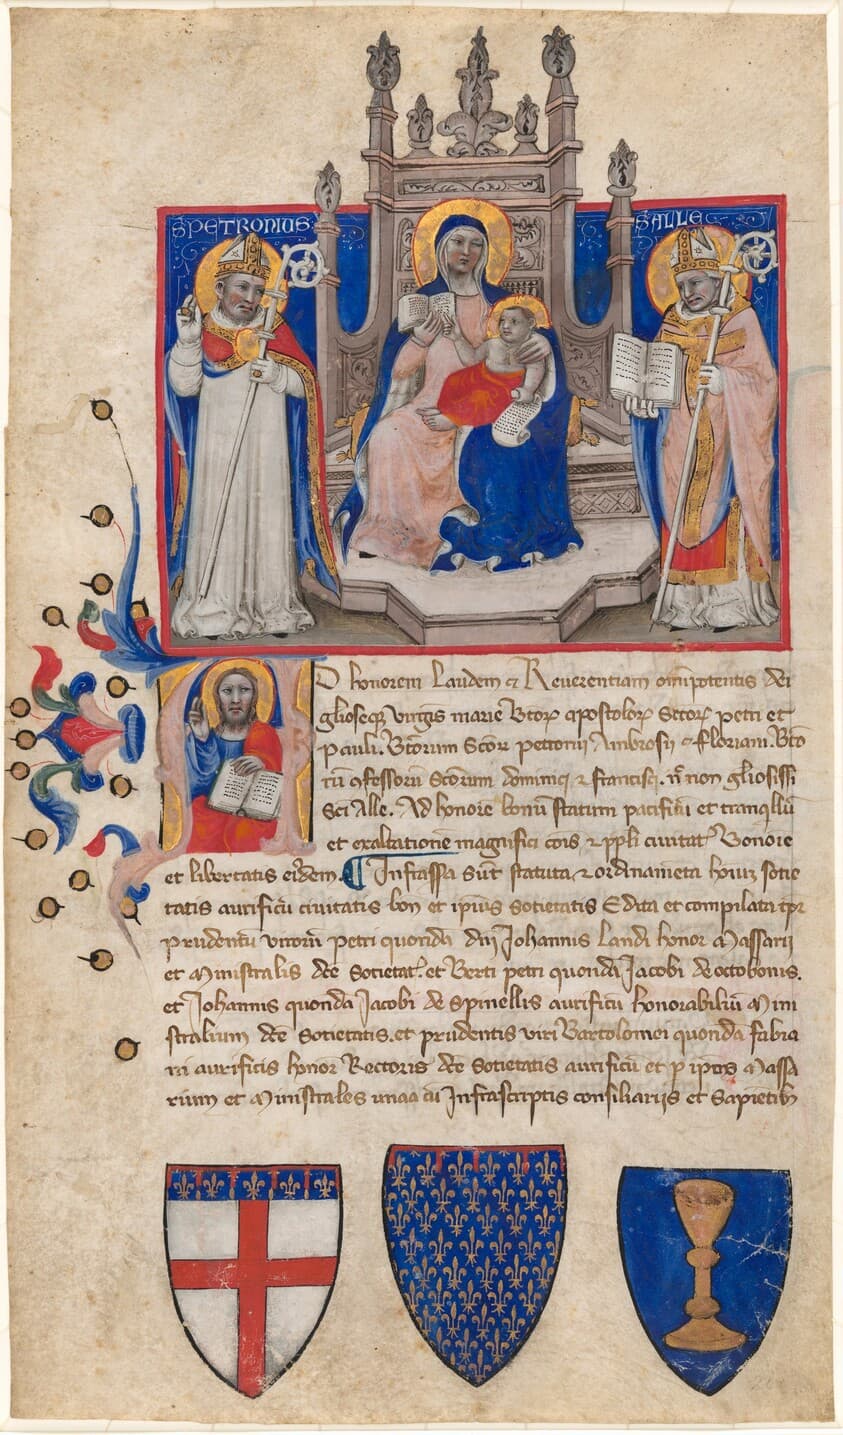 S PETRONIUS
S ALLE
D honorem Laudem & Reuerentiam omīpotentis dei
glioseqz uirgīs marie Btorꝝ apostolorꝝ Sctorꝝ petri et
Pauli. Btōrum Scōꝝ petronii Ambrosii & floriani. Btō
rū ɔfessorū Scōrum dominici & francisci. n̄ non gliosissi
Sci Alle. Ad honorē bonū statum pacificū et tranqllū
et exaltationē magnifici cōis & ppli ciuitat Bononie
et libertatis eiꝰdem. ¶ Infrassa sūt statuta & ordinamēta hoīuz socie
tatis aurificū ciuitatis bon et ipiꝰ societatis Edita et compilata
prudentū uirorū petri quondā dni Johannis Landi honor Massarii
et Ministralis dc̄e Societat. et Berti petri quondā Jacobi de octobonis.
et Johannis quondā Jacobi de Spinellis aurificū honorabiliū Mini
stralium dc̄e Societatis. et prudentis uiri Bartolomei quondā fabia
ni aurificis honor Rectoris dc̄e Societatis aurificū et p ip̄os Massa
rium et Ministrales unaa cū Infrascriptis consiliariis et Sapiētib